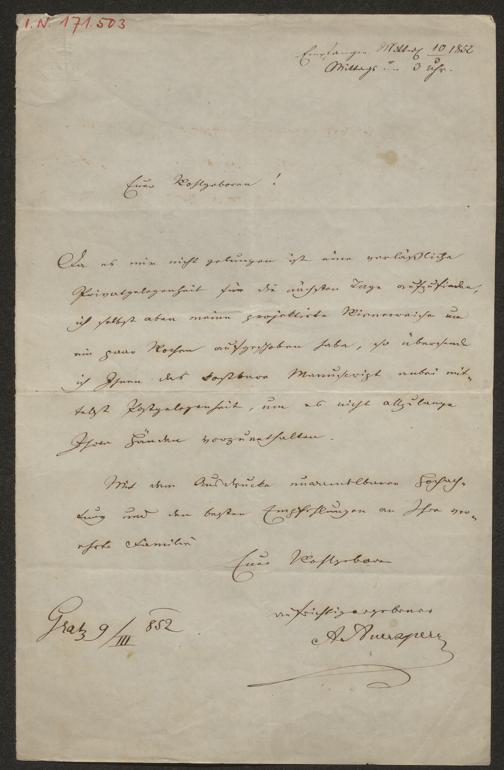 I.N. 171.503
Empfangen Mittwoch 10 1852
Mittags um 3 Uhr.
Euer Wohlgeboren!
Da es mir nicht gelungen ist eine verläßliche
Privatgelegenheit für die nächsten Tage aufzufinden,
ich selbst aber meine projektirte Wienerreise um
ein paar Wochen aufgeschoben habe, so übersende
ich Ihnen das kostbare Manuscript anbei mit-
telst Postgelegenheit, um es nicht allzulange
Ihren Händen vorzuenthalten.
Mit dem Ausdrucke unwandelbarer Hochach-
tung und den besten Empfehlungen an Ihre ver-
ehrte Familie
Euer Wohlgeboren
aufrichtigergebener
A. Auersperg
Gratz 9/III 852